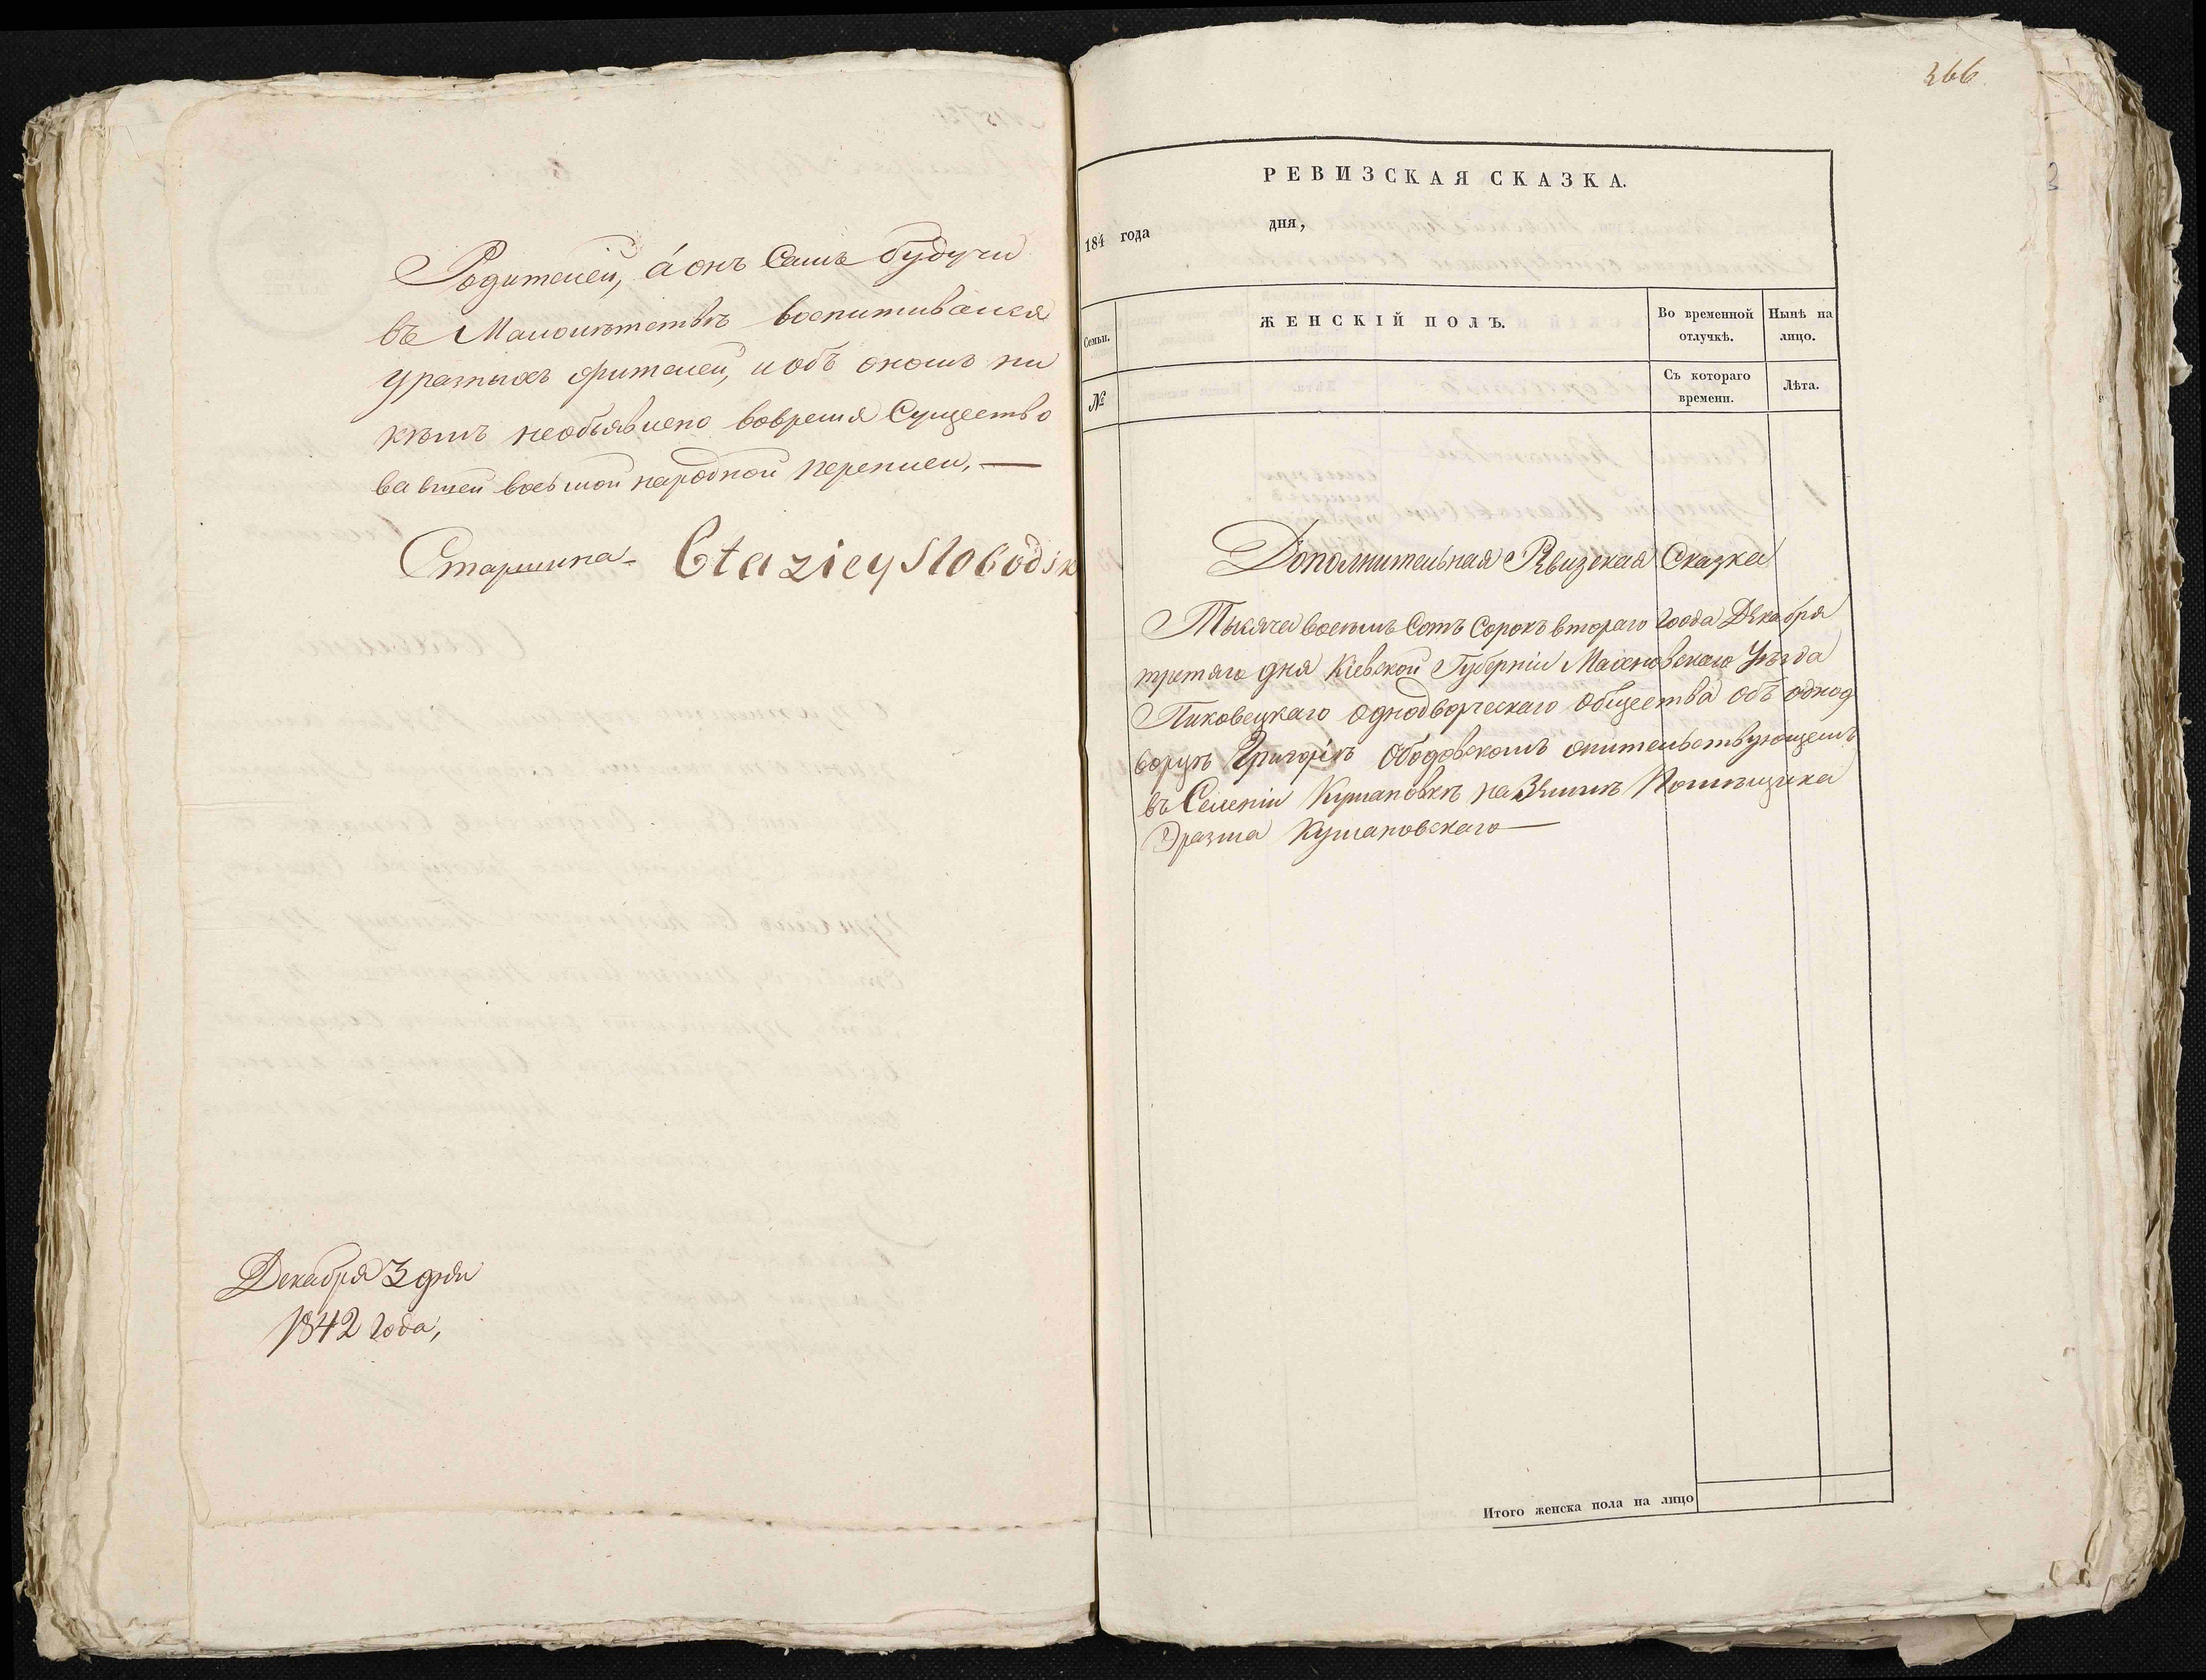 Родителей, а онъ Самъ будучи
въ Малолѣтствѣ воспитивался
у разныхъ жителей, и объ ономъ ни
кѣмъ необъявлено вовремя Существо
вавшей восьмой народной переписи, —
Старшина - Stazicy Slobodsk
Декабря 3 дня
1842 года,
366
РЕВИЗСКАЯ СКАЗКА.
184 года дня,
Семьи. ЖЕНСКІЙ ПОЛЪ. Во временной отлучкѣ. Нынѣ на лицо.
№ Съ котораго времени. Лѣта.
Дополнительная Рвизская Сказка
Тысяча восемъ Сотъ Сорокъ втораго года Декабря
третяго дня Кіевской Губерніи Махновскаго Уѣзда
Пиковецкаго Однодворческаго Общества объ однод
ворцѣ Григоріѣ Ободовскомъ жительствующемъ
въ Селеніи Кумановкѣ на Землѣ Помѣщика
Эразма Кумановскаго —
Итого женска пола на лицо